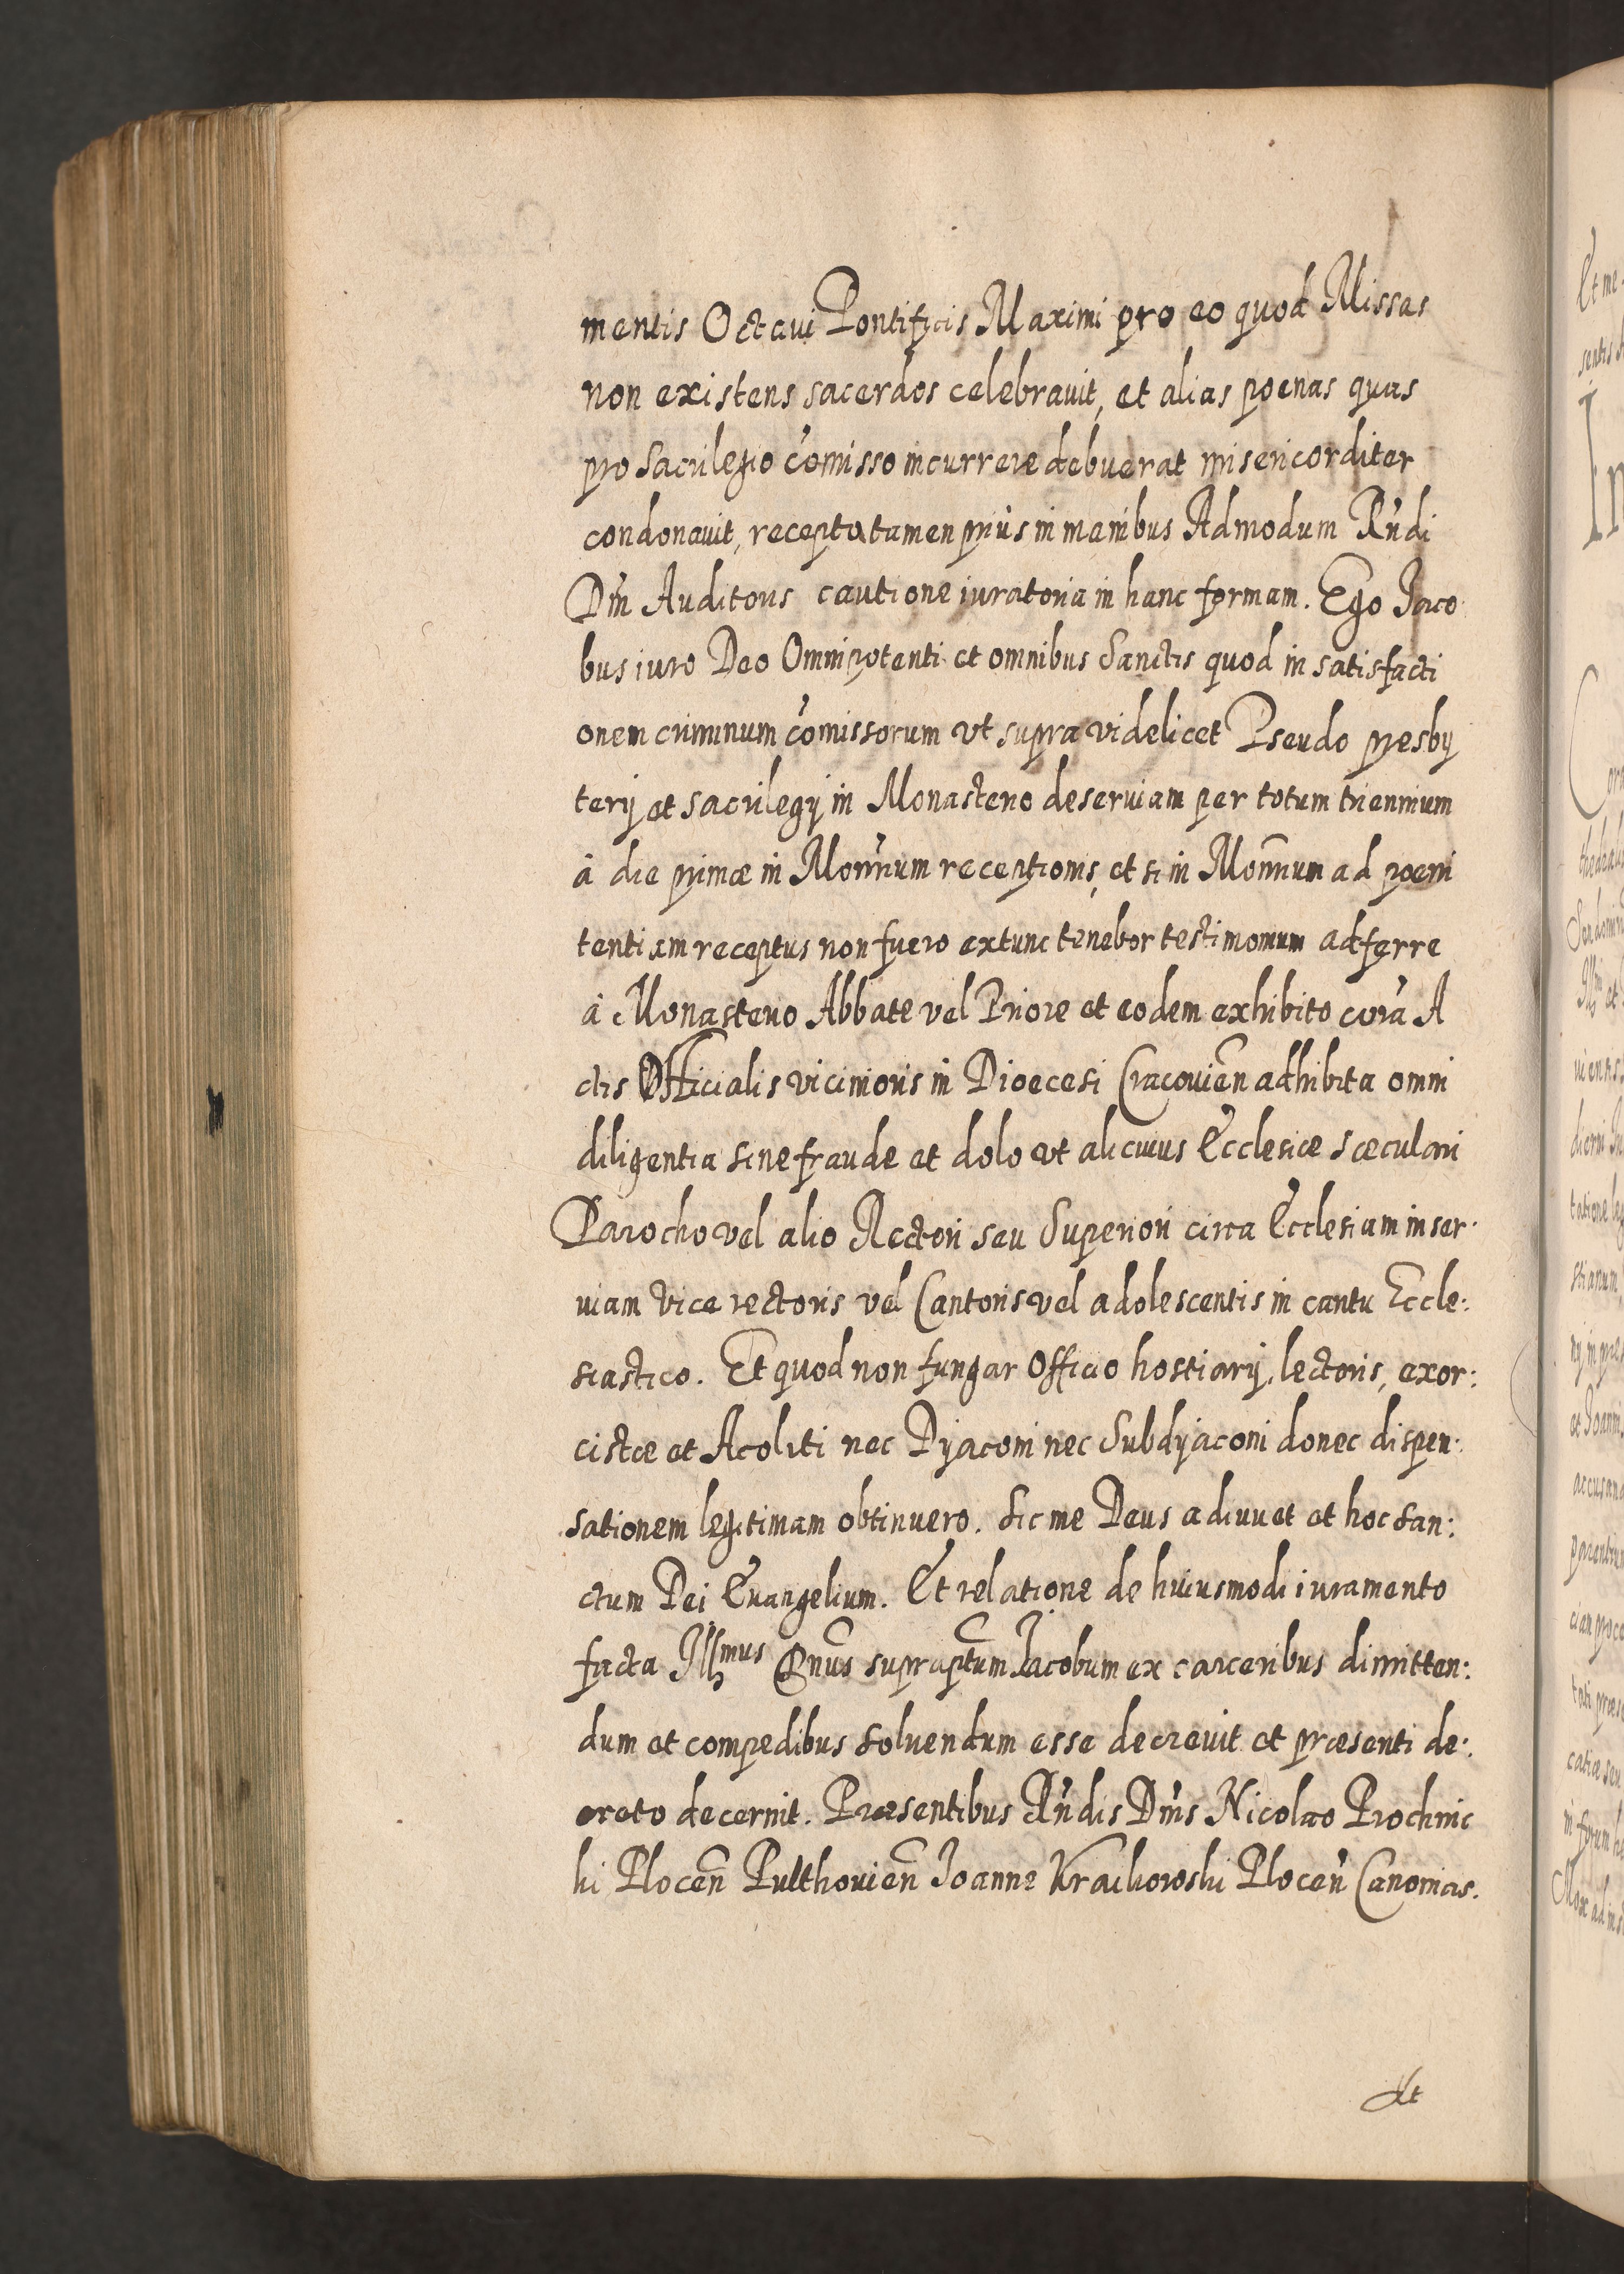 mentis Octaui Pontificis Maximi pro eo quod Missas
non existens sacerdos celebrauit, et alias poenas quas
pro sacrilegio comisso incurrere debuerat misericorditer
condonauit, recepta tamen prius in manibus Admodum Rndi
Dni Auditoris cautione iuratoria in hanc formam. Ego Jaco
bus iuro Deo Omnipotenti et omnibus Sanctis quod in satisfacti
onem criminum comissorum vt supra videlicet Pseudo presby
terij et sacrilegij in Monasterio deseruiam per totum triennium
à die primæ in Monrium receptionis, et si in Monrium ad poeni
tentiam receptus non fuero extunc tenebor testimonium adferre
à Monasterio Abbate vel Priore et eodem exhibito cora A
ctis Officialis vicinioris in Dioecesi Cracouien adhibita omni
diligentia sine fraude et dolo vt alicuius Ecclesiæ sæculari
Parocho vel alio Rectori seu Superiori circa Ecclesiam inser:
uiam vice rectoris vel Cantoris vel adolescentis in cantu Eccle:
siastico. Et quod non fungar Officio hostiarij, lectoris, exor:
cistæ et Acoliti nec Dyaconi nec Subdyaconi donec dispen:
sationem legitimam obtinuero. Sic me Deus adiuuet et hoc San:
ctum Dei Euangelium. Et relatione de huiusmodi iuramento
facta Illmus Dnus supraptum Jacobum ex carceribus dimitten:
dum et compedibus soluendum esse decreuit et præsenti de:
creto decernit. Præsentibus Rndis Dnis Nicolao Prochnic
ki Plocen Pulthouien Joanne Kraikowski Plocen Canonicis.
Et